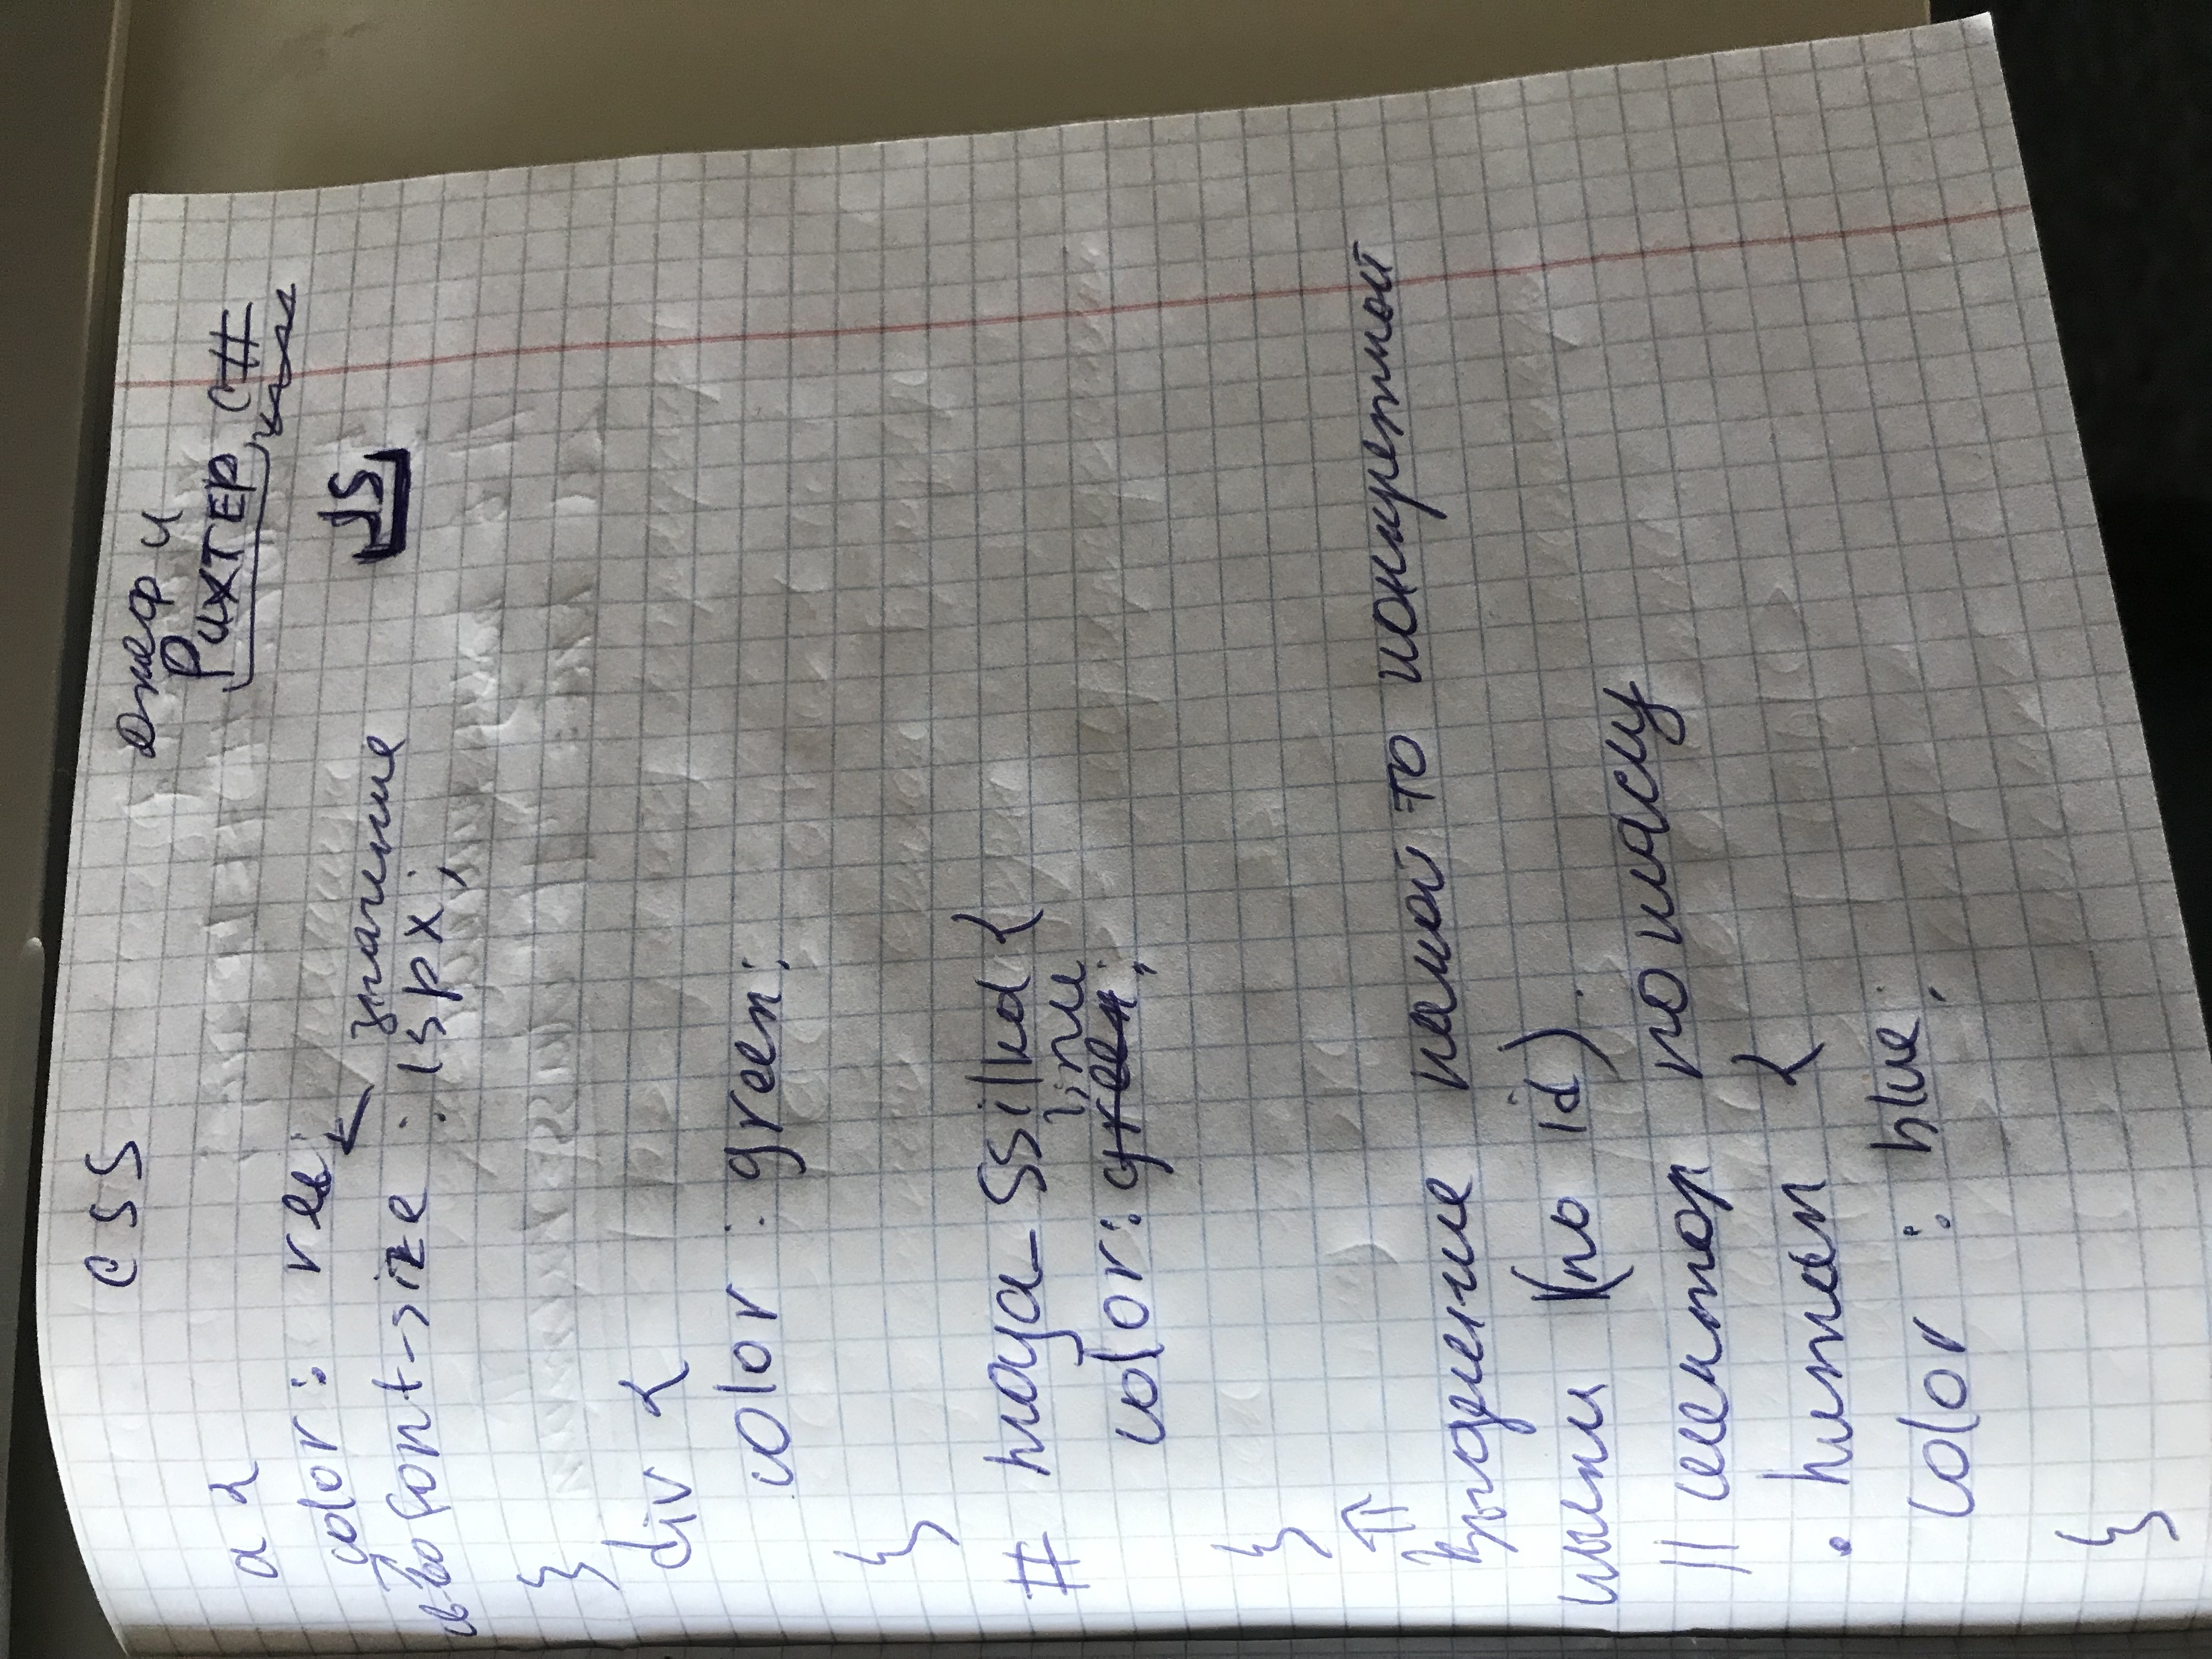 CSS
Джеф и
Рихтер C#
JS
a {
color: red;
значение
св-во font-size : 15px;
}
div {
color : green;
}
# maya_ssilka {
line
color: green;
}
Выделение какой то конкретной
ссылки (по id).
// селектор по классу
. human {
color : blue;
}